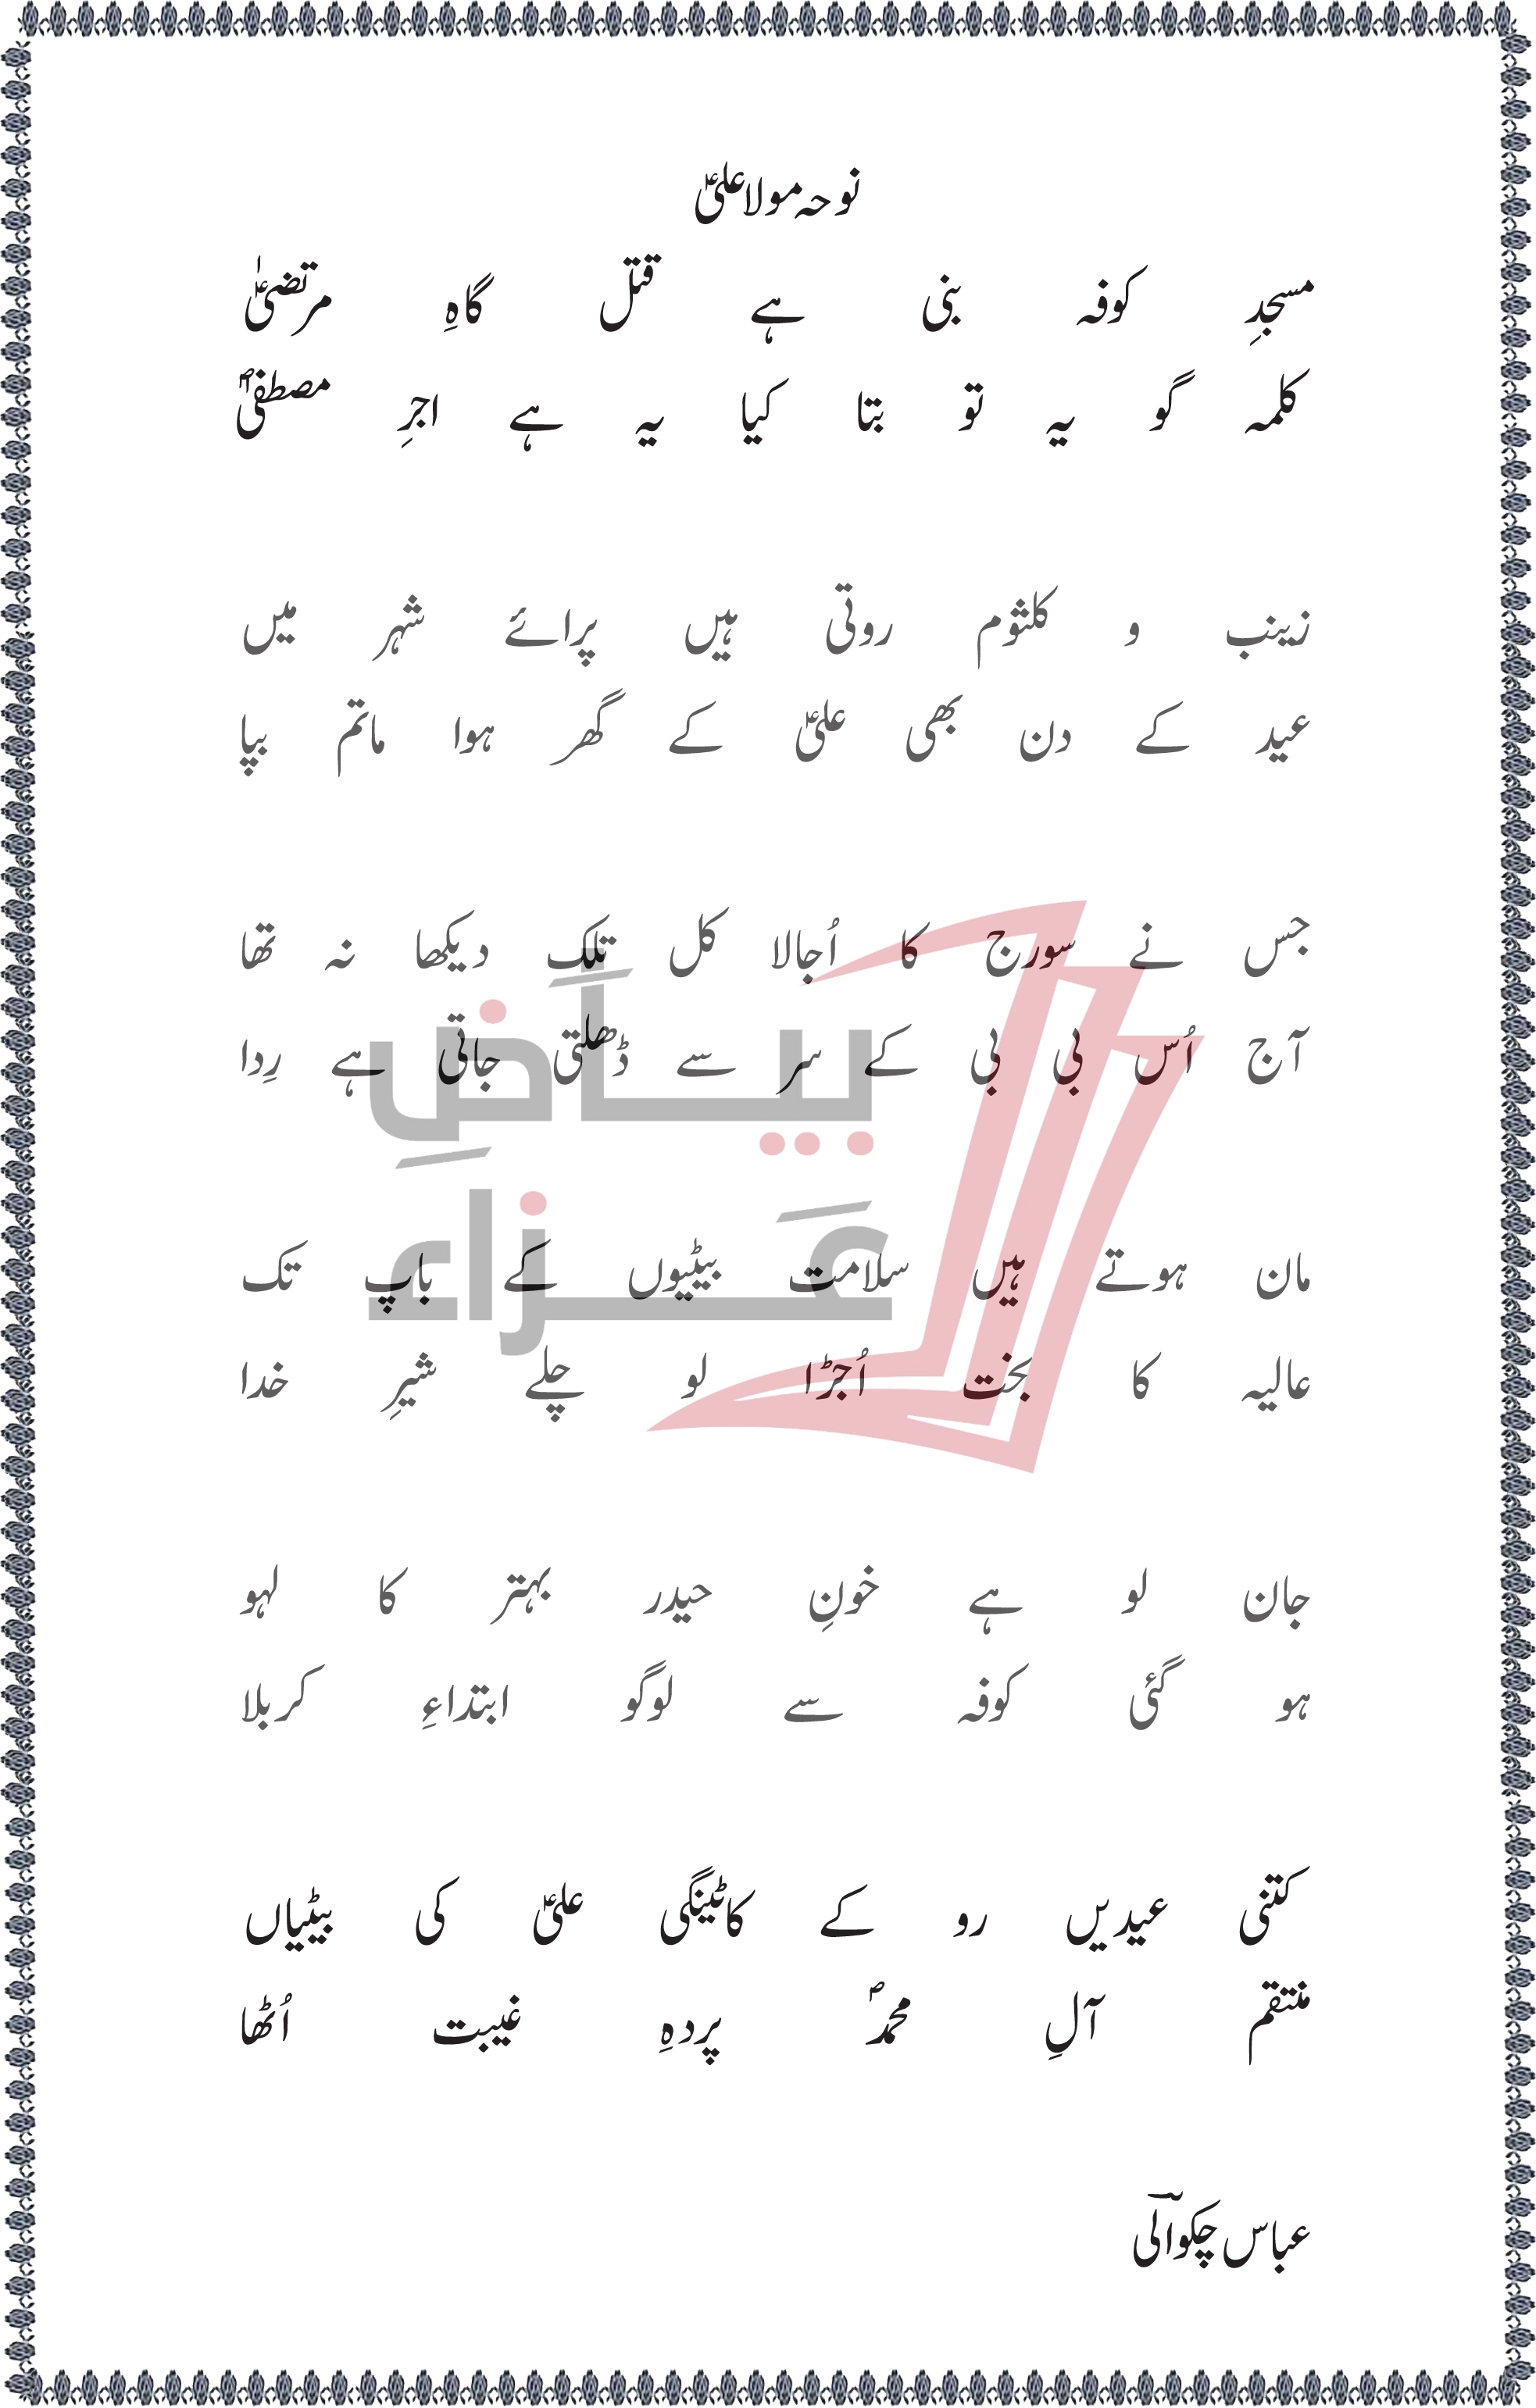 نوحہ مولا علیؑ
مسجدِ کوفہ بنی ہے قتل گاہِ مرتضیٰؑ
کلمہ گو یہ تو بتا کیا یہ ہے اجرِ مصطفیٰؐ
زینب و کلثوم روتی ہیں پرائے شہر میں
عید کے دن بھی علیؑ کے گھر ہوا ماتم بپا
جس نے سورج کا اُجالا کل تلک دیکھا نہ تھا
آج اُس بی بی کے سر سے ڈھلتی جاتی ہے رِدا
بیَاضِ
عَزاء
مان ہوتے ہیں سلامت بیٹیوں کے باپ تک
عالیہ کا بخت اُجڑا لو چلے شیرِ خدا
جان لو ہے خونِ حیدر بہتر کا لہو
ہو گئی کوفہ سے لوگو ابتداءِ کربلا
کتنی عیدیں رو کے کاٹینگی علیؑ کی بیٹیاں
منتقم آلِ محمدؐ پردہِ غیبت اُٹھا
عباس چکوالؔی